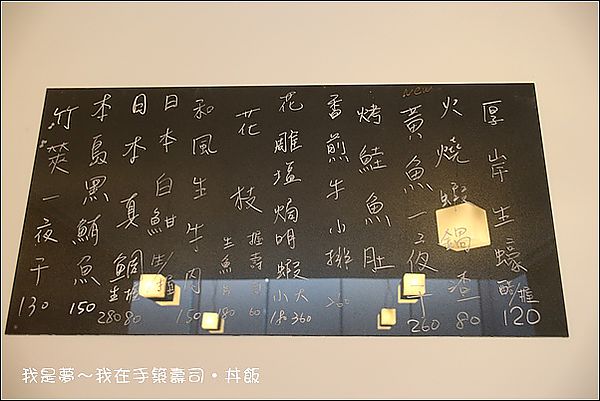 厚岸生蠔 醋/握 120
火燒蝦鍋渣 80
New
黃魚一夜干 260
烤鮭魚肚
香煎牛小排 200
花雕塩焗明蝦 小180 大360
花枝 握壽司 60 生魚片 180
和風生牛肉 150
日本白魽 生/握
日本真鯛 生280 握80
本島黑鮪魚 150
竹筴一夜干 130
我是夢～我在手築壽司‧丼飯